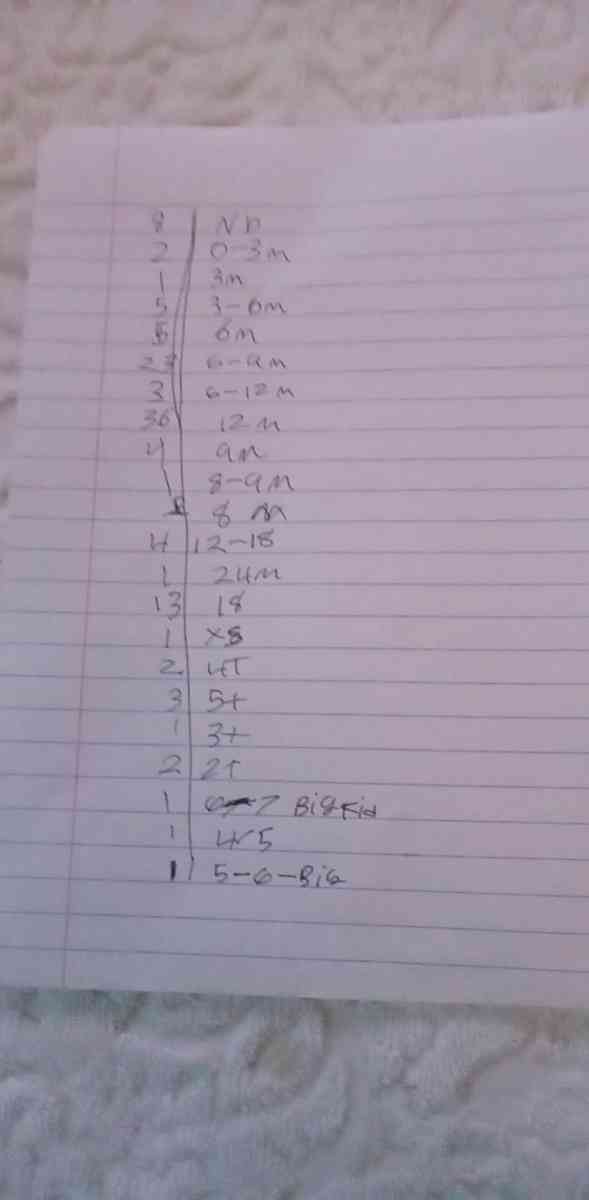 8 NB
2 0-3m
1 3m
5 3-6m
5 6m
6-9m
3 6-12m
36 12m
4 9m
1 8-9m
8 m
4 12-18
1 24m
13 18
1 XS
2 4T
3 5t
1 3t
2 2T
1 6-7 Big Kid
1 4-5
1 5-6-Big